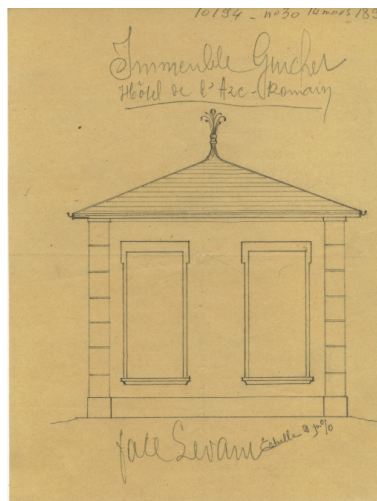 10194 - n° 30 14 mars 189
Immeuble Guichet
Hôtel de l'Arc-Romain
face Levant Echelle